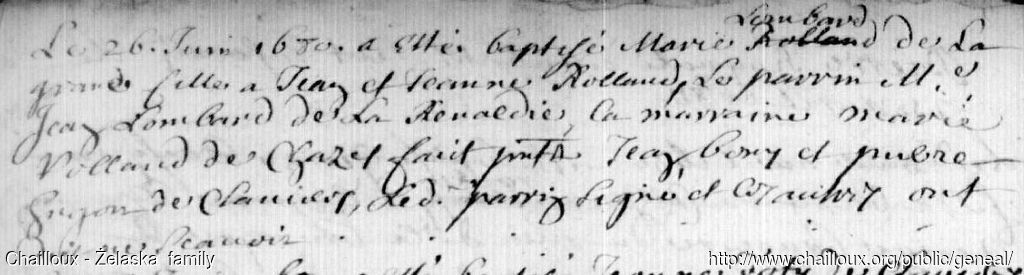 Lombard
Le 26. Juin 1680. a esté baptisé Marie Rolland de La
grand fille a Jean et Jeanne Rolland, Le parrin M.e
Jean Lombard de La Renaldie, la marraine marie
Volland de Chazet fait pnts Jean bory et
de Claviers, Led. parrin Signé et Les autres ont
Chailloux - Żelaska family
http://www.chailloux.org/public/geneal/